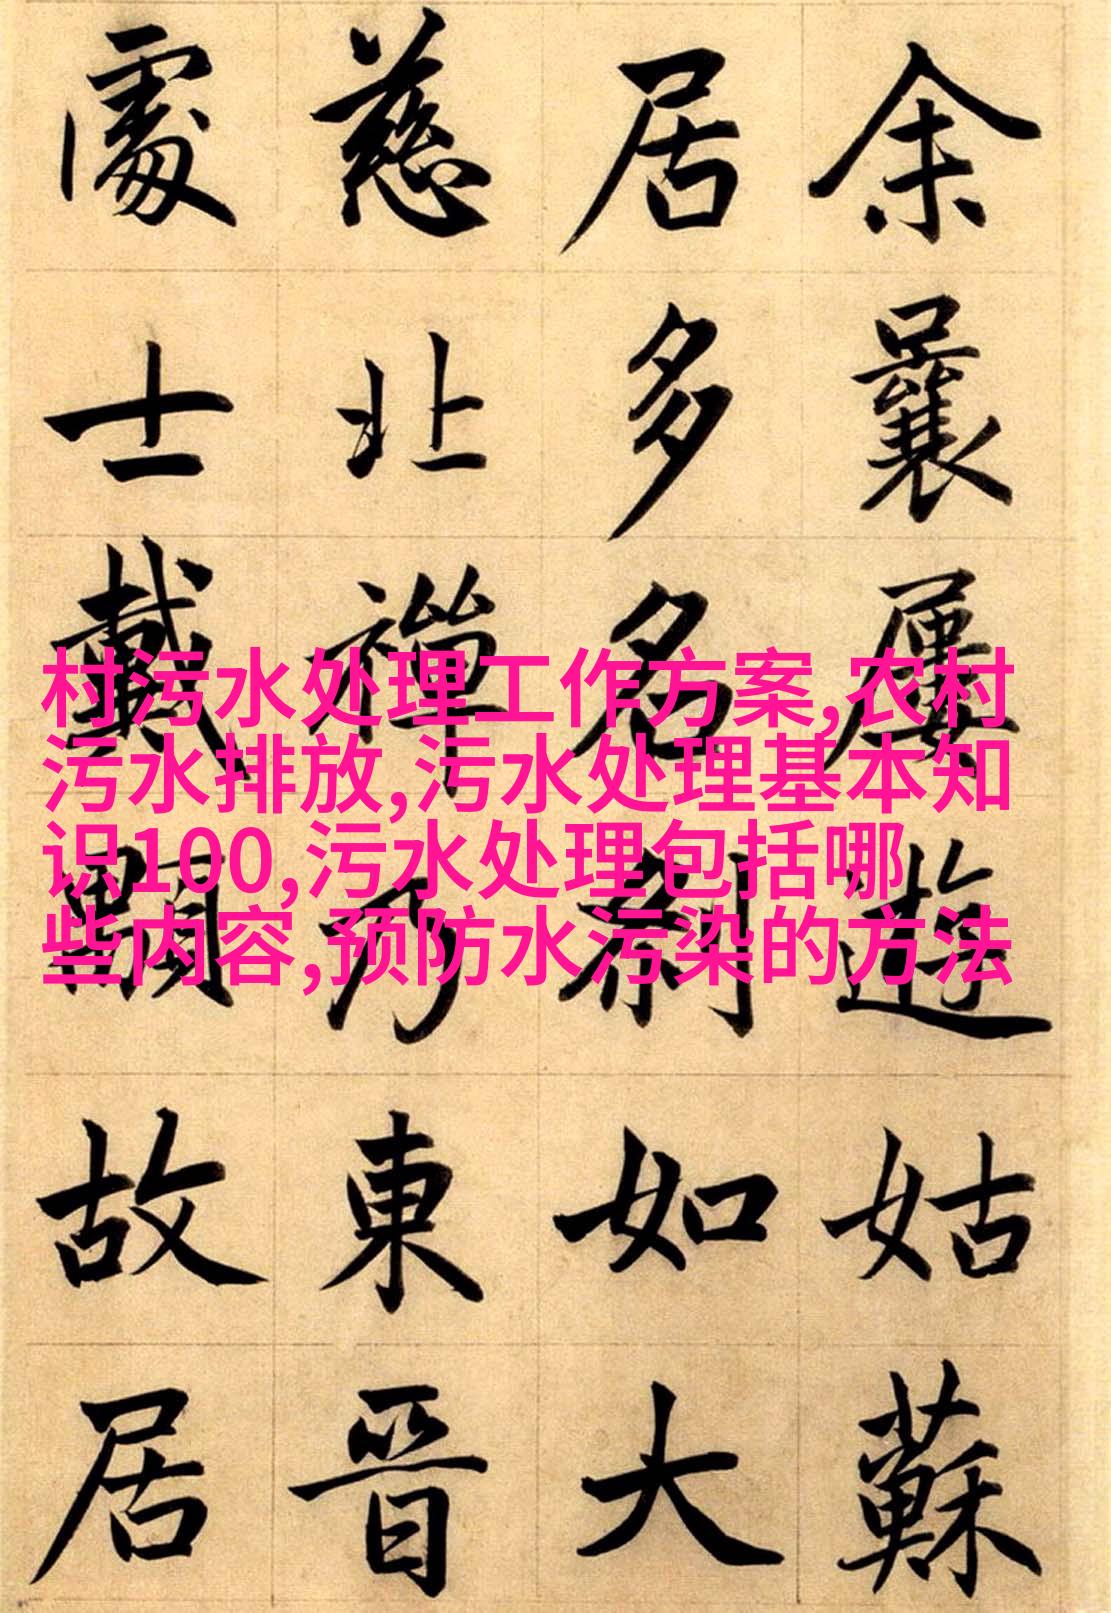 余曩屢遊姑蘇
居多名刹如大
慈北禪乃東晉
處士戴顒故居
村污水处理工作方案,农村
污水排放,污水处理基本知
识100,污水处理包括哪
些内容,预防水污染的方法